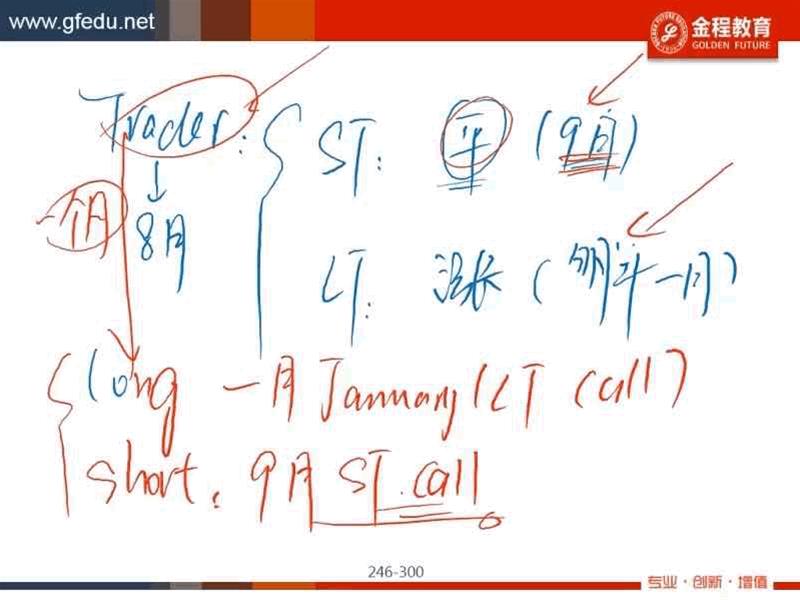 www.gfedu.net
金程教育
GOLDEN FUTURE
Trader: ST: 平 (9月)
一个月 8月
LT: 涨 (明年一月)
long 一月 January (LT call)
short. 9月 ST. call
246-300
专业·创新·增值